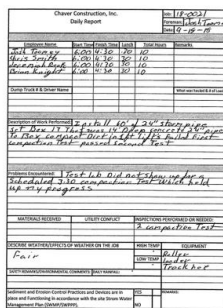 Chaver Construction, Inc.
Daily Report
Job: 18-0021
Foreman: Josh Toomey
Date: 9-18-19
Employee Name Start Time Finish Time Lunch Total Hours Remarks
Josh Toomey 6:00 4:30 30 10
Chris Smith 6:00 4:30 30 10
Jeremiah 6:00 4:30 30 10
Brian Knight 6:00 4:30 30 10
Dump Truck # & Driver Name
Description of Work Performed: Install 60' of 24" storm pipe
Set Box 17 That was 14' Deep concrete 24" pipe
To Box compact Dirt in lifts Failed First
compaction Test passed second Test
Problems Encountered: Test lab Did not show up for a
Scheduled 3:30 compaction Test Which held
up my progress
MATERIALS RECEIVED UTILITY CONFLICT INSPECTIONS PERFORMED OR NEEDED:
2 compaction Test
DESCRIBE WEATHER/EFFECTS OF WEATHER ON THE JOB HIGH TEMP EQUIPMENT
Fair Roller
LOW TEMP Loder
Track hoe
SAFETY REMARKS/ENVIRONMENTAL COMMENTS DAILY RAINFALL:
Sediment and Erosion Control Practices and Devices are in YES REMARKS:
place and Functioning in accordance with the site Storm Water
Management Plan (SWMP/SWPPP). NO